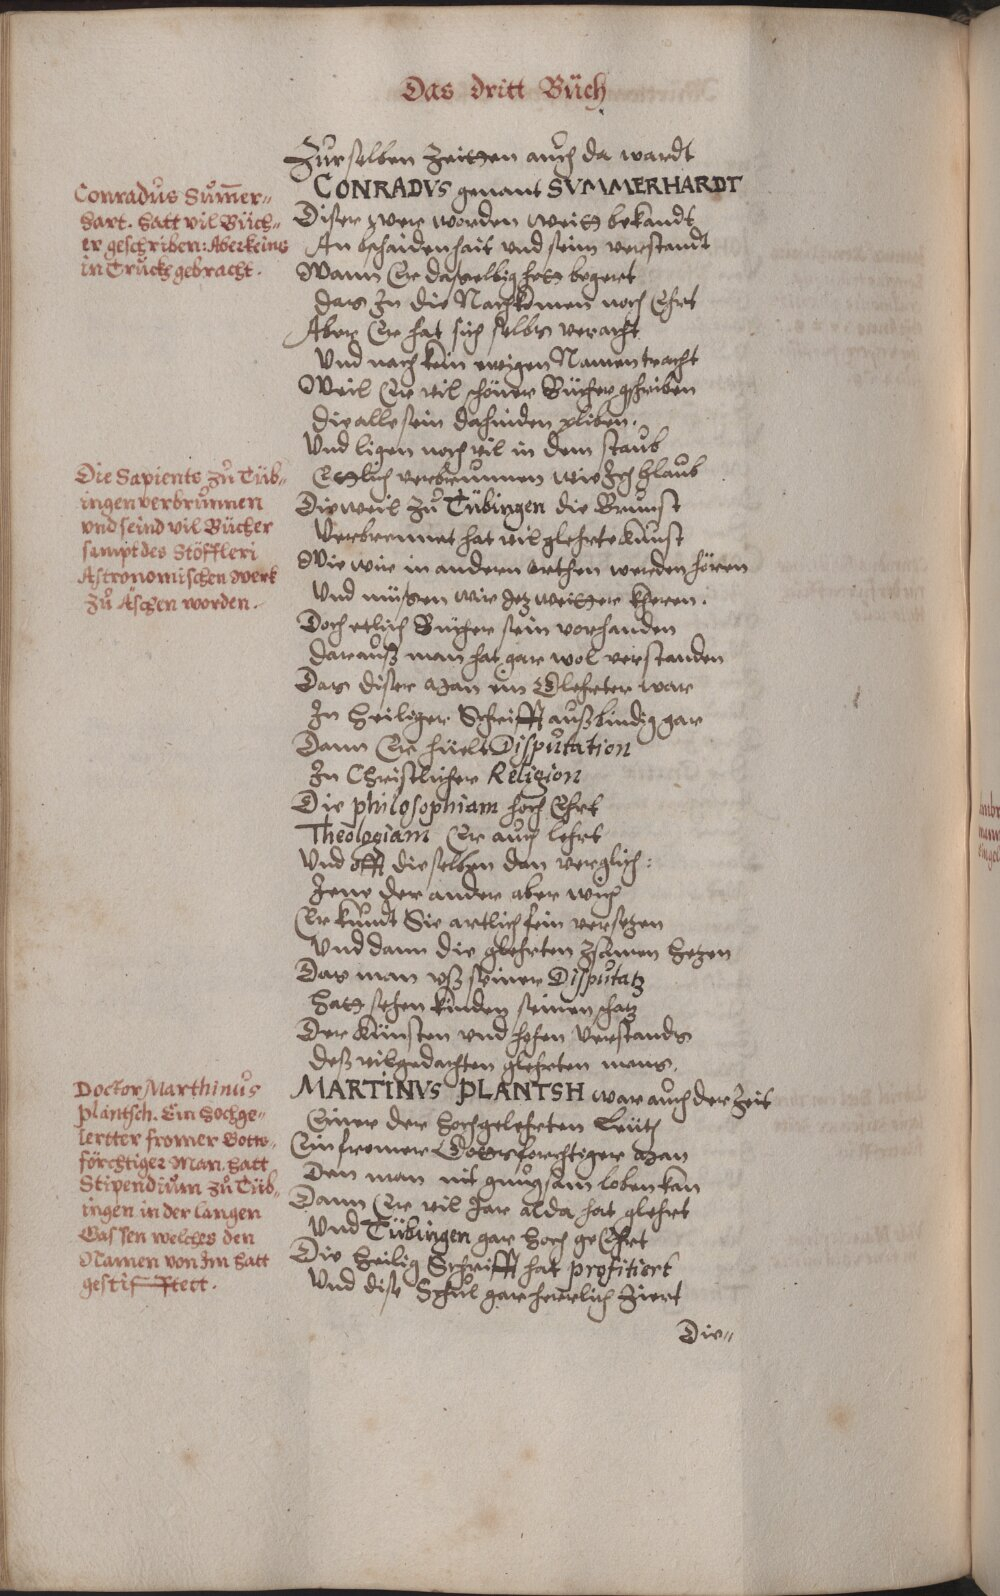 Das dritt Bůch
Zur selben Zeitten auch da wardt
CONRADVS genant SVMMERHARDT
Diser wer worden weitt bekandt
An bschaidenhait und seim verstandt
Wann Er dasselbig hett begert
das In die Nachkomen noch Ehrt
Aber Er hat sich selbs veracht
Und nach kein ewigen Namen tracht
Weil Er vil schöner Bücher gschriben
die alle sein dahinden pliben.
Und ligen noch vil in dem staub
Ettlich verbrunnen wie Ich glaub
Dieweil zů Tübingen die Brunst
Verbrennet hat vil glehrte kunst
Wie wir in andern orthen werden hören
Und müssen wir Jetz weitter kheren.
Doch etlich Bücher sein vorhanden
darauß man hat gar wol verstanden
Das diser Man ein Glehrter war
In heiliger Schrifft außbindig gar
Dann Er hielt Disputation
In Christlicher Religion
Die philosophiam hoch Ehrt
Theologiam Er auch lehrt
Und offt dieselben dan verglich:
Jene der ander aber wich
Er kundt Sie artlich fein versetzen
Und dann die glehrten zsamen hetzen
Das man uß seiner Disputatz
hatt sehen kinden seinen schatz
Der künsten und hohen Verstands
deß vilgedachten glehrten mans.
MARTINVS PLANTSH war auch der Zeit
Einer der hochgelehrten Leüth
Ein fromer Gottsforchtiger Man
Den man nit gnugsam loben kan
Dann Er vil Jar alda hat glehrt
Und Tübingen gar hoch geEhrt
Die heilig Schrifft hat profitiert
Und dise Schůl gar herrlich Ziert
Die=
Conradus Sum̄er=
hart. hatt vil Büch=
er geschriben: Aber keins
in Truckh gebracht.
Die Sapients zů Tüb=
ingen verbrunnen
vnd seind vil Bücher
sampt des Stöffleri
Astronomischen Werk
zů Äschen worden.
Doctor Marthinus
plantsch. Ein hochge=
lertter fromer Gotts=
förchtiger Man. hatt
Stipendium zů Tüb=
ingen in der langen
Gassen welches den
Namen von Im hatt
gestifftett.